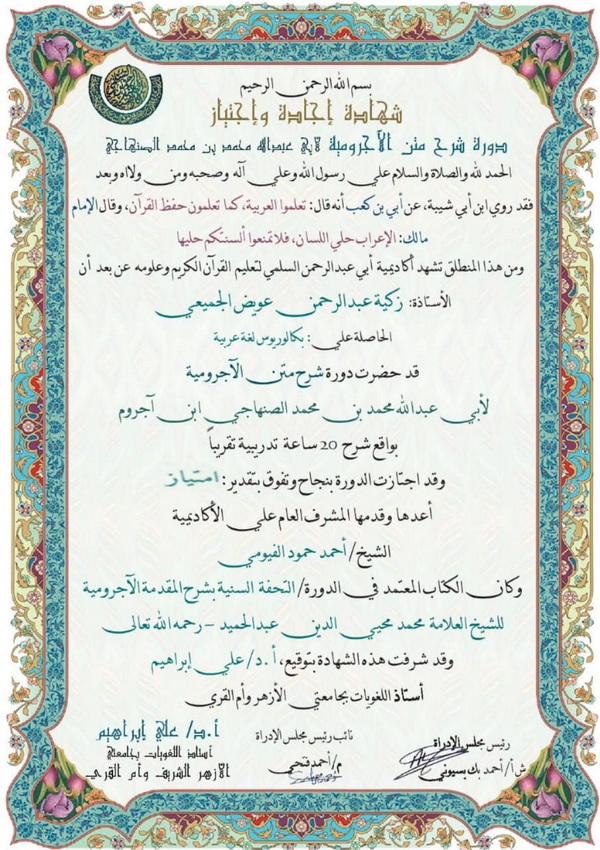 بسم الله الرحمن الرحيم
شهادة إجادة وإجتياز
دورة شرح متن الأجرومية لابي عبدالله محمد بن محمد الصنهاجي
الحمد لله والصلاة والسلام علي رسول الله وعلي آله وصحبه ومن ولاه وبعد
فقد روي ابن أبي شيبة، عن أبي بن كعب أنه قال: تعلموا العربية، كما تعلمون حفظ القرآن، وقال الإمام
مالك: الإعراب حلي اللسان، فلا تمنعوا ألسنتكم حليها
ومن هذا المنطلق تشهد أكاديمية أبي عبد الرحمن السلمي لتعليم القرآن الكريم وعلومه عن بعد أن
الأستاذة: زكية عبد الرحمن عويض الجميعي
الحاصلة علي: بكالوريوس لغة عربية
قد حضرت دورة شرح متن الآجرومية
لأبي عبد الله محمد بن محمد الصنهاجي ابن آجروم
بواقع شرح 20 ساعة تدريبية تقريباً
وقد اجتازت الدورة بنجاح وتفوق بتقدير: امتياز
أعدها وقدمها المشرف العام علي الأكاديمية
الشيخ/ أحمد حمود الفيومي
وكان الكتاب المعتمد في الدورة/ التحفة السنية بشرح المقدمة الآجرومية
للشيخ العلامة محمد محيي الدين عبدالحميد – رحمه الله تعالى
وقد شرفت هذه الشهادة بتوقيع، أ.د/ علي إبراهيم
أستاذ اللغويات بجامعتي الأزهر وأم القري
رئيس مجلس الإدراة
ش أ/ أحمد بك بسيوني
نائب رئيس مجلس الإدراة
م/ أحمد فتحي
أ.د/ علي إبراهيم
أستاذ اللغويات بجامعتي
الأزهر الشريف وأم القرى